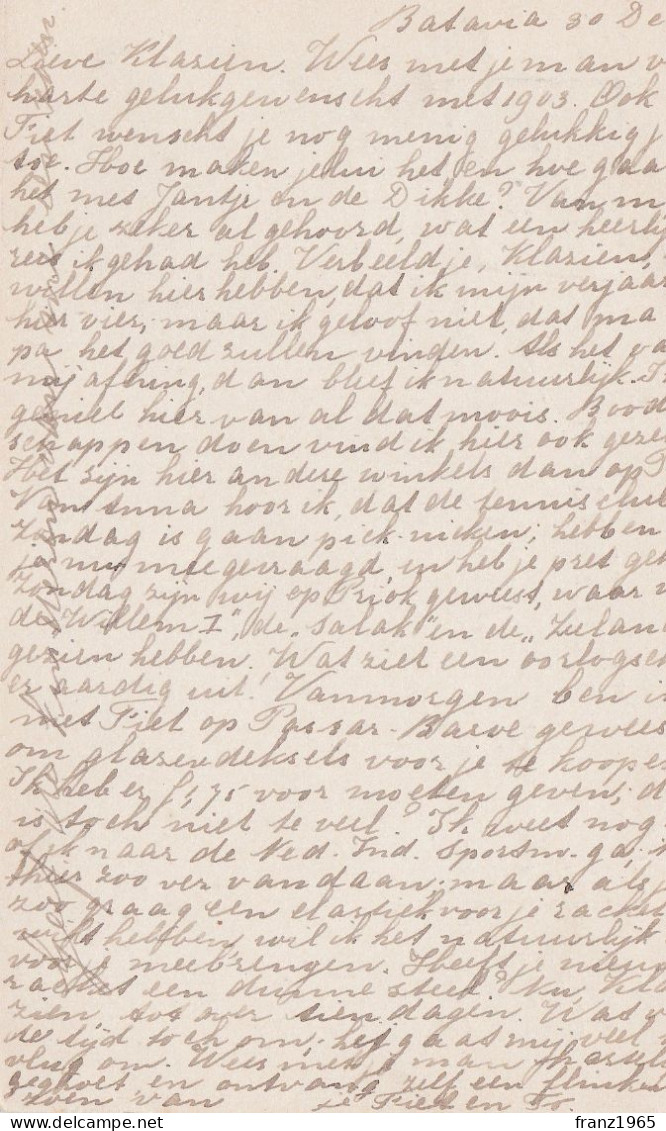 Batavia 30 De
Lieve Klazien. Wees met je man v
harte gelukgewenscht met 1903. Ook
Fiet wenscht je nog menig gelukkig j
toe. Hoe maken jelui het, en hoe gaa
het met Jantje en de Dikke? Van m
heb je zeker al gehoord, wat een heerlij
reis ik gehad heb. Verbeeld je, Klazien,
willen hier hebben, dat ik mijn verjaar
hier vier, maar ik geloof niet, dat ma
pa het goed zullen vinden. Als het va
mij afhing, dan bleef ik natuurlijk. I
geniet hier van al dat moois. Bood
schappen doen vind ik hier ook geze
Het zijn hier andere winkels dan op
Van Anna hoor ik, dat de tennisclub
Zondag is gaan pick-nicken; hebben
je nu meegevraagd, en heb je pret geh
Zondag zijn wij op Priok geweest, waar w
de „Willem I", de „Salak" en de „Zeelan
gezien hebben. Wat ziet een oorlogsch
er aardig uit! Vanmorgen ben i
met Fiet op Passar-Baroe gewees
om glazendeksels voor je te koope
Ik heb er f 1,75 voor moeten geven; d
is toch niet te veel? Ik weet nog
of ik naar de Ned. Ind. Sportm. ga,
hier zoo ver vandaan, maar als j
zoo graag een elastiek voor je racket
wilt hebben, wil ik het natuurlijk
voor je meebrengen. Heeft je nieuw
racket een dunne steel? Nu, Kla
zien, tot over tien dagen. Wat v
de tijd toch om, het gaat mij veel
vlug om. Wees met je man hartel
gegroet en ontvang zelf een flinken
zoen van je Fiet en